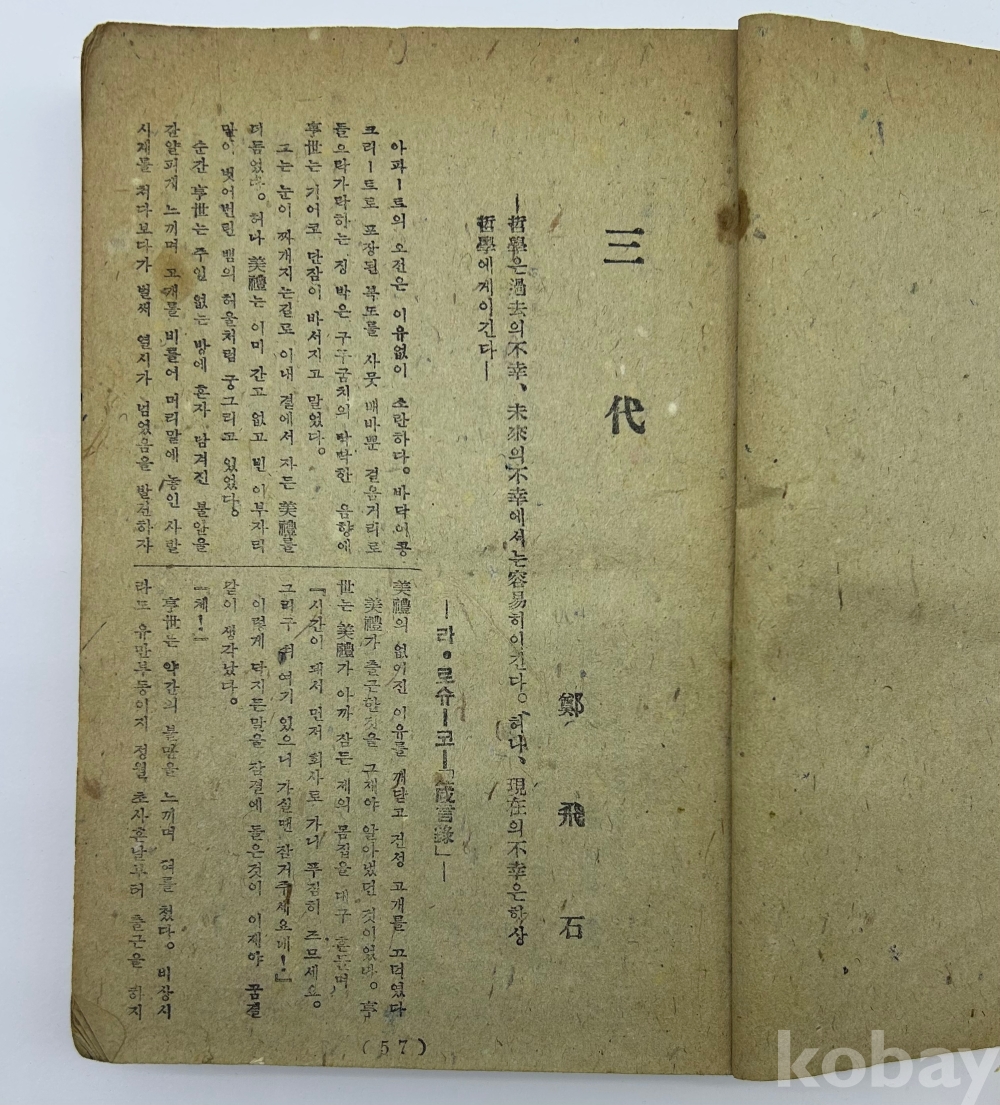 三代
鄭飛石
―哲學은過去의不幸、未來의不幸에서는容易히이긴다。허나、現在의不幸은항상
哲學에게이긴다―
―라·로슈―코―「箴言錄」―
아파―트의 오전은 이유없이 소란하다。바닥이콩
크리―트로 포장된 복도를 사뭇 배바뿐 걸음거리로
들으락가락하는 징 박은 구두굼치의 딱딱한 음향에
亨世는 기어코 단잠이 바서지고 말었다。
그는 눈이 짜개지는길로 이내 곁에서 자든 美禮를
더듬었다。허나 美禮는 이미 간곧 없고 빈 이부자리
많이 벗어번린 뱀의 허울처럼 궁그리고 있었다。
순간 亨世는 주인 없는 방에 혼자 남겨진 불안을
간얄피게 느끼며 고개를 비틀어 머리맡에 놓인 사발
시계를 처다보다가 벌써 열시가 넘었음을 발견하자
美禮의 없어진 이유를 깨닫고 건성 고개를 끄덕였다
美禮가 출근한것을 그제야 알아냈던 것이었다。亨
世는 美禮가 아까 잠든 제의 몸집을 대구 흔들며
『시간이 돼서 먼저 회사로 가니 푸짐히 즈므세요。
그리구 쇠 여기 있으니 가실땐 잠거주세요네!』
이렇게 다지든말을 잠결에 들은것이 이제야 꿈결
같이 생각났다。
『체!』
亨世는 약간의 불만을 느끼며 혀를 찼다。비상시
라도 유만부동이지 정월 초사흔날부터 출근을 하지
(57)
kobay